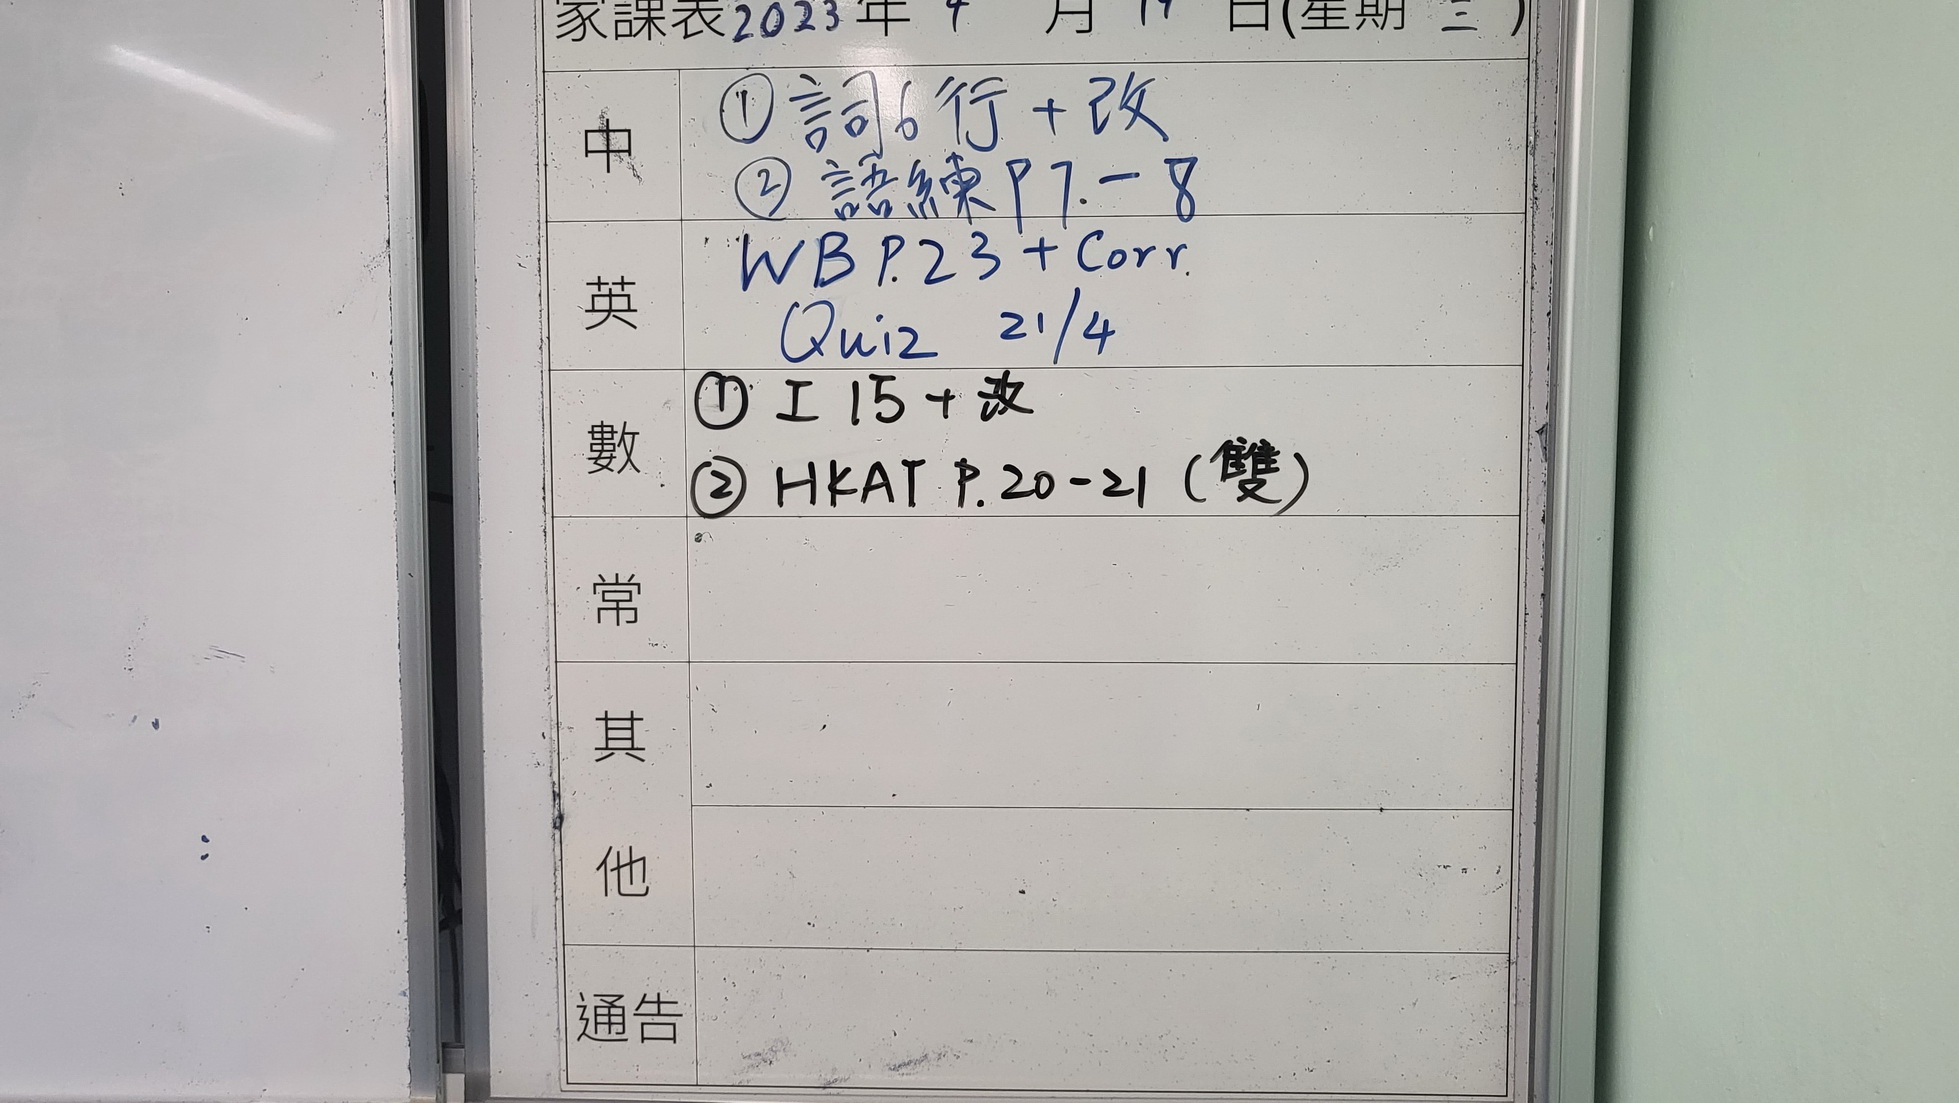 家課表2023年4月19日(星期三)
中
①詞6行+改
②語練P7.-8
英
WB P.23 + Corr.
Quiz 21/4
數
① I 15 + 改
② HKAT P.20-21 (雙)
常
其
他
通告